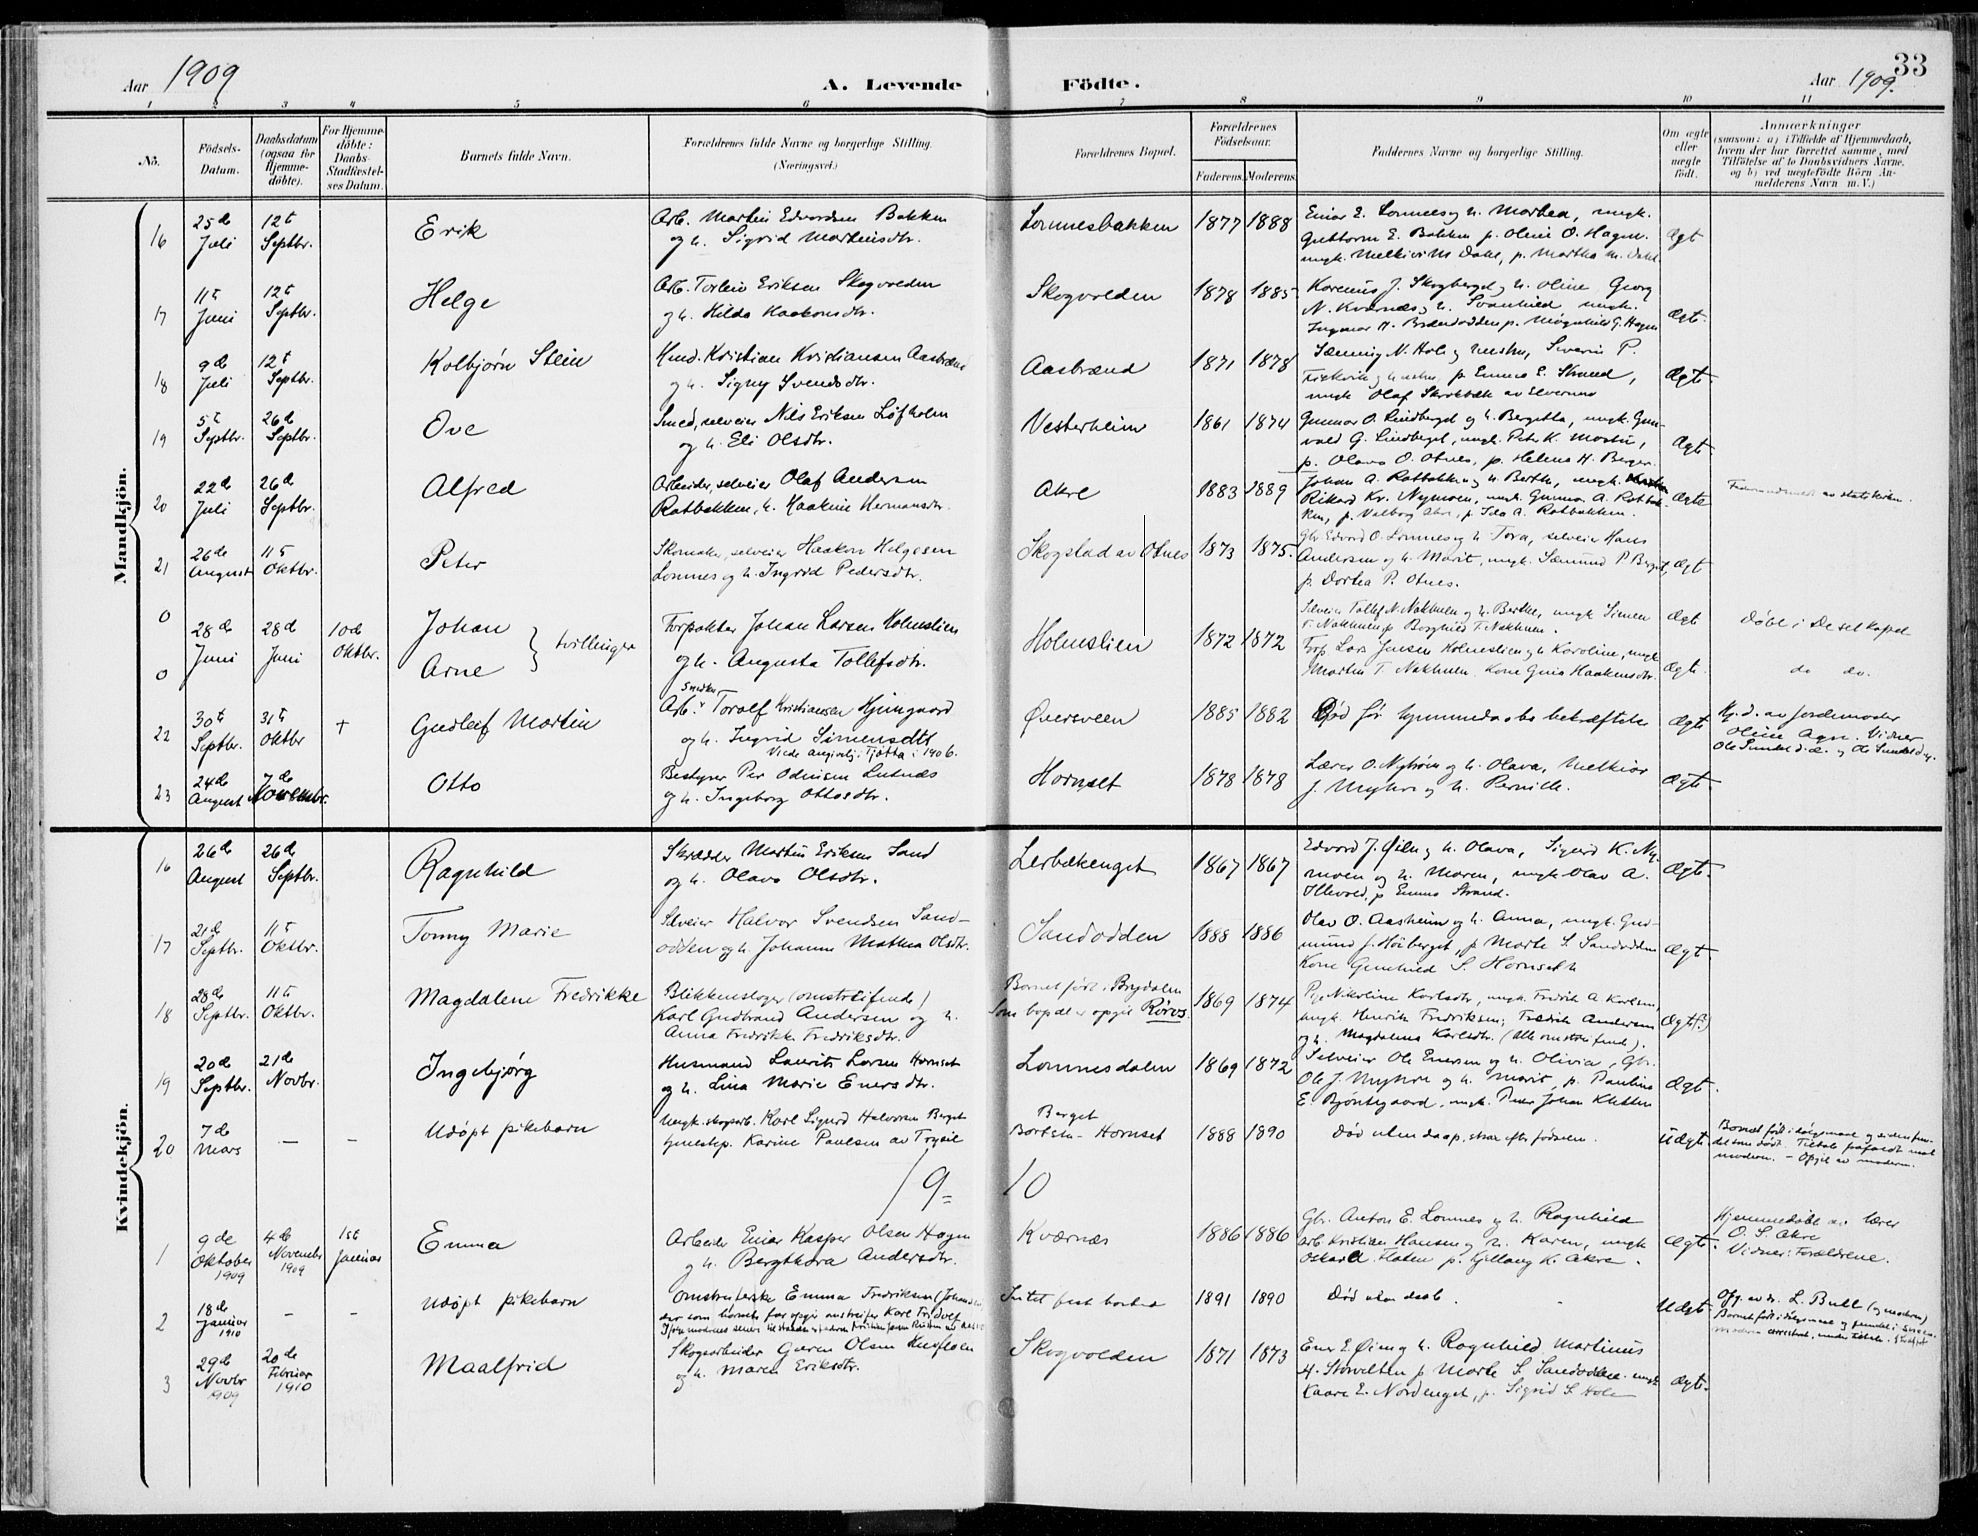 Aar 1909
A. Levende Födte.
Aar 1909.
33
1 2 3 4 5 6 7 8 9 10 11
No.
Födsels-Datum.
Daabsdatum (ogsaa for Hjemme-döbte).
For Hjemme-döbte: Daabs-Stadfæstel-ses Datum.
Barnets fulde Navn.
Forældrenes fulde Navne og borgerlige Stilling. (Næringsvei.)
Forældrenes Bopæl.
Forældrenes Födselsaar.
Faderens. Moderens.
Faddernes Navne og borgerlige Stilling.
Om ægte eller uægte födt.
Anmærkninger
(saasom: a) i Tilfælde af Hjemmedaab,
hvem der har forrettet samme, med
Tilföielse af to Daabsvidners Navne,
og b) ved uægtefödte Börn An-
melderens Navn m. V.)
Mandkjön.
16 25de Juli 12te Septbr. Erik
Arb. Martin Edvardsen Bakken
og h. Sigrid Martinsdtr.
Lomnesbakken 1877 1888
Einar E. Lomnes og h. Marthea, ungk.
Guttorm E. Bakken p. Oline O. Hagen
ungk. Melkior M Dahl, p. Martha M. Dahl.
Ægt
17 11te Juni 12te Septbr. Helge
Arb. Torleiv Eriksen Skogvolden
og h. Hilda Haakonsdtr.
Skogvolden 1878 1885
Karenus J. Skogberget og h. Oline, Georg
N. Kværnæs og h. Svanhild, ungk.
Ægt.
18 9de Juli 12te Septbr. Kolbjørn Stein
Hmd. Kristian Kristiansen Aasbrænd
og h. Signy Svendsdtr.
Aasbrænd 1871 1878
N. Hole og hustru, Severin P.
og hustru, p. Emma E. Strand,
ungk Olaf
Ægte.
19 5te Septbr. 26de Septbr. Ove
Smed, selveier Nils Eriksen Løfholm
og h. Eli Olsdtr.
Vesterheim 1861 1874
Gunnar O. Lindberget og h. Bergitta, ungk. Gun-
vald G. Lindberget, ungk. Peter K. Mostu,
p. Olava O. Otnes, p. Helena H. Berger.
Ægt.
20 22de Juli 26de Septbr. Alfred
Arbeider, selveier Olaf Andersen
Ratbakken, h. Haakine Hermansdtr.
Akre 1883 1889
Johan A. Ratbakken og h. Berthe, ungk.
Rikard Kr. Nymoen, ungk. Gunnar A. Ratbak-
ken, p. Valborg Akre, p. Ida A. Ratbakken.
Ægte
av statskirken.
21 26de August 11te Oktbr. Peter
Skomaker, selveier Haakon Helgesen
Lomnes og h. Ingrid Pedersdtr.
Skogstad av Otnes 1873 1875.
Gbr. Edvard O. Lomnes og h. Tora, selveier Hans
Andersen og h. Marit, ungk. Sæmund P Berget,
p. Dorthea P. Otnes.
Ægt
0 28de Juni 28de Juni 10de Oktbr. Johan
0 Arne } tvillinger
Forpakter Johan Larsen Holmslien
og h. Augusta Tollefsdtr.
Holmslien 1872 1872
Selveier Tollef N. Nakhulen og h. Berthe, ungk Simen
T. Nakhulen p. Borghild T. Nakhulen.
Forp. Lars Jensen Holmslien og h. Karoline, ungk
Martin T. Nakhulen, Kone Gina Haakensdtr.
Ægt
Ægt.
Døbt i Deset kapel
do do.
22 30te Septbr. 31te Oktbr + Gudleif Martin
Snedker
Arb. v Toralf Kristiansen Hjemgaard
og h. Ingrid Simensdtr
Viede angivelig i Tjøtta i 1906.
Øversveen 1885 1882
Død før hjemmedaabs bekræftelse
Ægt
Hj.d. av Jordemoder
Oline Agre. Vidner
23 24de August 7de Novembr. Otto
Bestyrer Per Odinsen Lutnæs
og h. Ingeborg Ottosdtr.
Hornset 1878 1878
Lærer O. Nyhrøm og h. Olava, Melkior
J. Myhre og h. Pernille.
Ægt.
Kvindekjön.
16 26de August 26de Septbr. Ragnhild
Skrædder Martin Eriksen Sand
og h. Olava Olsdtr.
Lerbækenget 1867 1867
Edvard J. Øien og h. Olava, Sigurd K. Ny-
moen og h. Maren, ungk Olav A.
Illevold, p Emma Strand.
Ægt.
17 21de Septbr. 11te Oktbr. Tonny Marie
Selveier Halvor Svendsen Sand-
odden og h. Johanne Mathea Olsdtr.
Sandodden 1888 1886
Olav O. Aasheim og h. Anna, ungk. Gud-
mund J. Høiberget, p Marte S. Sandodden
Kone Gunhild S. Hornseth
Ægt.
18 28de Septbr. 11te Oktbr. Magdalene Fredrikke
Blikkenslager (omstreifende)
Karl Gudbrand Andersen og h.
Anna Fredrikke Fredriksdtr.
Barnet født i Brydalen
Som bopæl er opgit Røros. 1869 1874
Pige Nikoline Karlsdtr, ungk. Fredrik A Karlsen,
ungk. Henrik Fredriksen, Fredrik Andersen
og h. Magdalena Karlsdtr. (Alle omstreifende).
Ægt(?)
19 20de Septbr. 21de Novbr. Ingebjørg
Husmand Laurits Larsen Hornset
og h. Lina Marie Enersdtr.
Lomnesdalen 1869 1872
Selveier Ole Enersen og h. Olivia, Gbr.
Ole J. Myhre og h. Marit, p. Pauline
E. Bjøntegaard, ungk. Peder Johan Kletten
Ægt.
20 7de Mars — — Udøpt pikebarn
Ungk. skogsarb. Karl Sigurd Halvorsen Berget
tjenestep. Karine Paulsen av Trysil
Berget
Hornset 1888 1890
Død uten daap, strax efter fødselen.
Uægt.
Barnet født i dølgsmaal og siden fun-
det som dødt. Tiltale mot
moderen. – Opgit av moderen.
19= 10
1 9de Oktober 1909 4de Novembr 1909 1ste Januar Emma
Arbeider Einar Kasper Olsen Hagen
og h. Bergthora Andersdtr.
Kværnæs 1886 1886
Gbr. Anton E. Lomnes og h. Ragnhild
Arb. Kristian Hansen og h. Karen, ungk
Oskar Floten p. Kjellaug K. Akre.
Ægt.
Hjemmedøbt av lærer
O. S. Akre
Vidner: Forældrene.
2 18de Januar 1910 – – Udøpt pikebarn
Omstreiferske Emma Fredriksen
der som barnets far opgir omstreifer Karl Fridolf
Intet fast bosted 1891 1890
Død uten daab.
Uægt.
Opg. av dr. L. Bull (og moderen)
Barnet født i dølgsmaal og fundet i sneen.
3 29de Novbr 1909 20de Februar 1910 Maalfrid
Skogsarbeider Gøran Olsen
og h. Maren Eriksdtr.
Skogvolden 1871 1873
Ener E. Øien og h. Ragnhild, Martinus
H. Storvelten p Marte S. Sandodden. ungk
Kaare E. Nordenget, p. Sigrid S. Hole
Ægt.